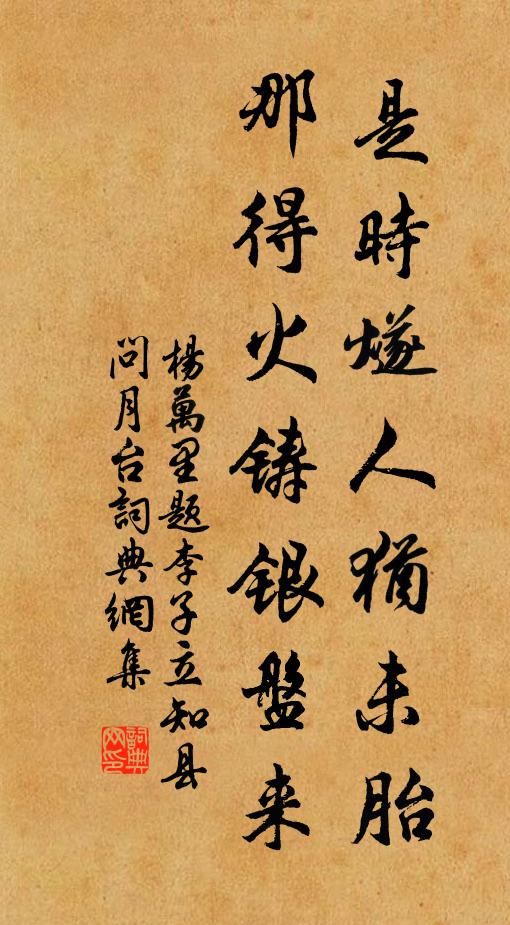 是時燧人猶未胎
那得火鑄銀盤来
楊萬里題李子立知县
問月台詞典網集
詞典網印